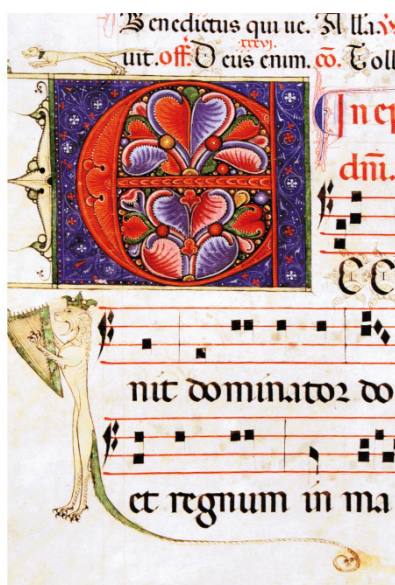 Benedictus qui ue. Alla. ỹ
xxxvi.
uit. off. Deus enim. cō. Toll
In ep
dñi.
E CC
nit dominator do
et regnum in ma